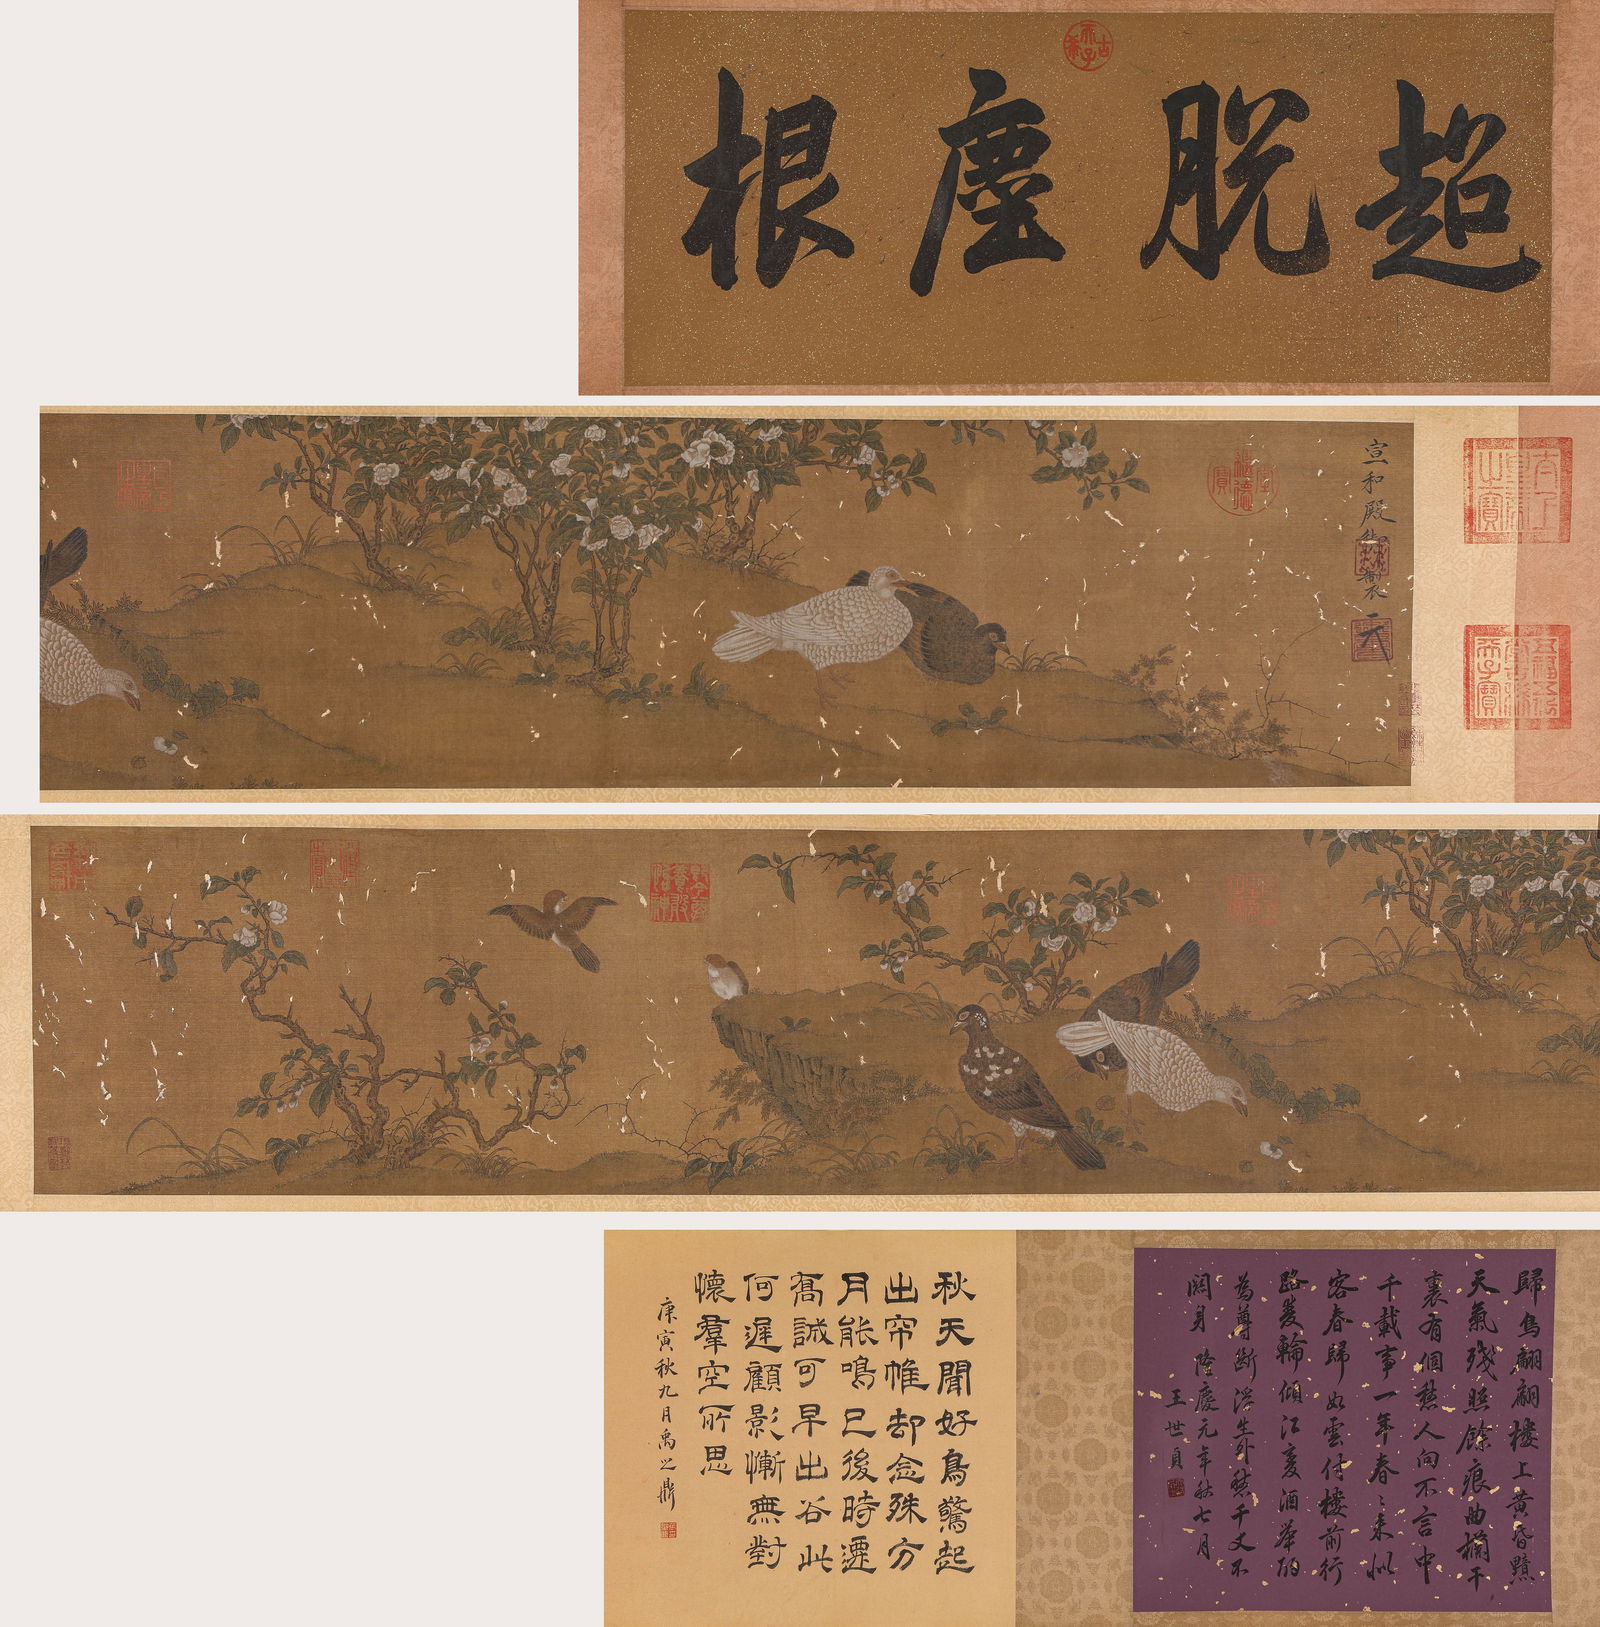 古希天子
超脫塵根
宣和殿御製
太上皇帝之寶
五福五代堂古稀天子寶
歸鳥翩翩樓上黃昏黯
天氣殘照餘痕曲欄干
裏有個愁人向不言中
千載事一年春〻來似
客春歸如雲付樓前行
路雙輪傾江變酒舉酌
為尊斷浮生外愁千丈不
關身 隆慶元年秋七月
王世貞
秋天聞好鳥驚起
出帘帷却念殊方
月能鳴已後時遷
喬誠可早出谷此
何遲顧影慚無對
懷羣空所思
庚寅秋九月禹之鼎